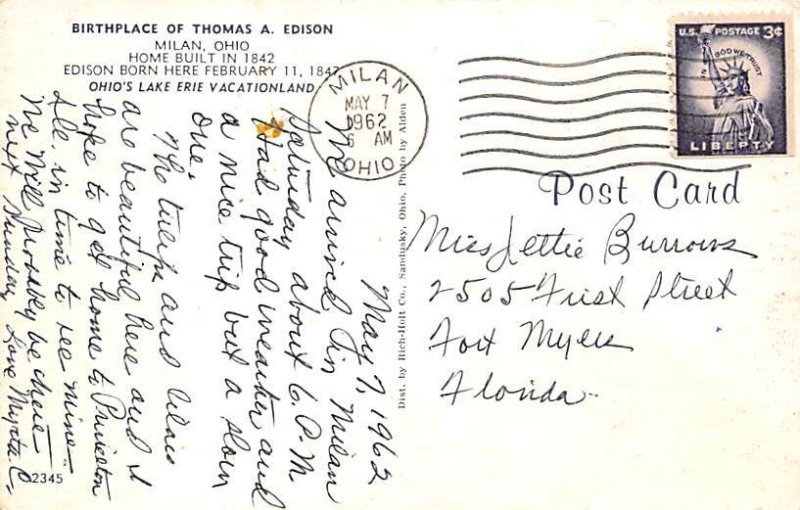 BIRTHPLACE OF THOMAS A. EDISON
MILAN, OHIO
HOME BUILT IN 1842
EDISON BORN HERE FEBRUARY 11, 1847
OHIO'S LAKE ERIE VACATIONLAND
MILAN
MAY 7
1962
6 AM
OHIO
U.S. POSTAGE 3¢
IN GOD WE TRUST
LIBERTY
Post Card
Miss Jettie Burrows
2505 First Street
Fort Myers
Florida
Dist. by Rich-Holt Co., Sandusky, Ohio, Photo by Alden
May 7, 1962
We arrived in Milan
Saturday about 6. P.M
Had good weather and
a nice trip but a slow
one.
The tulips and lilacs
are beautiful here and I
hope to get home to Princeton
Ill. in time to see mine
We will probably be there
next Sunday Love Myrta C-
2345